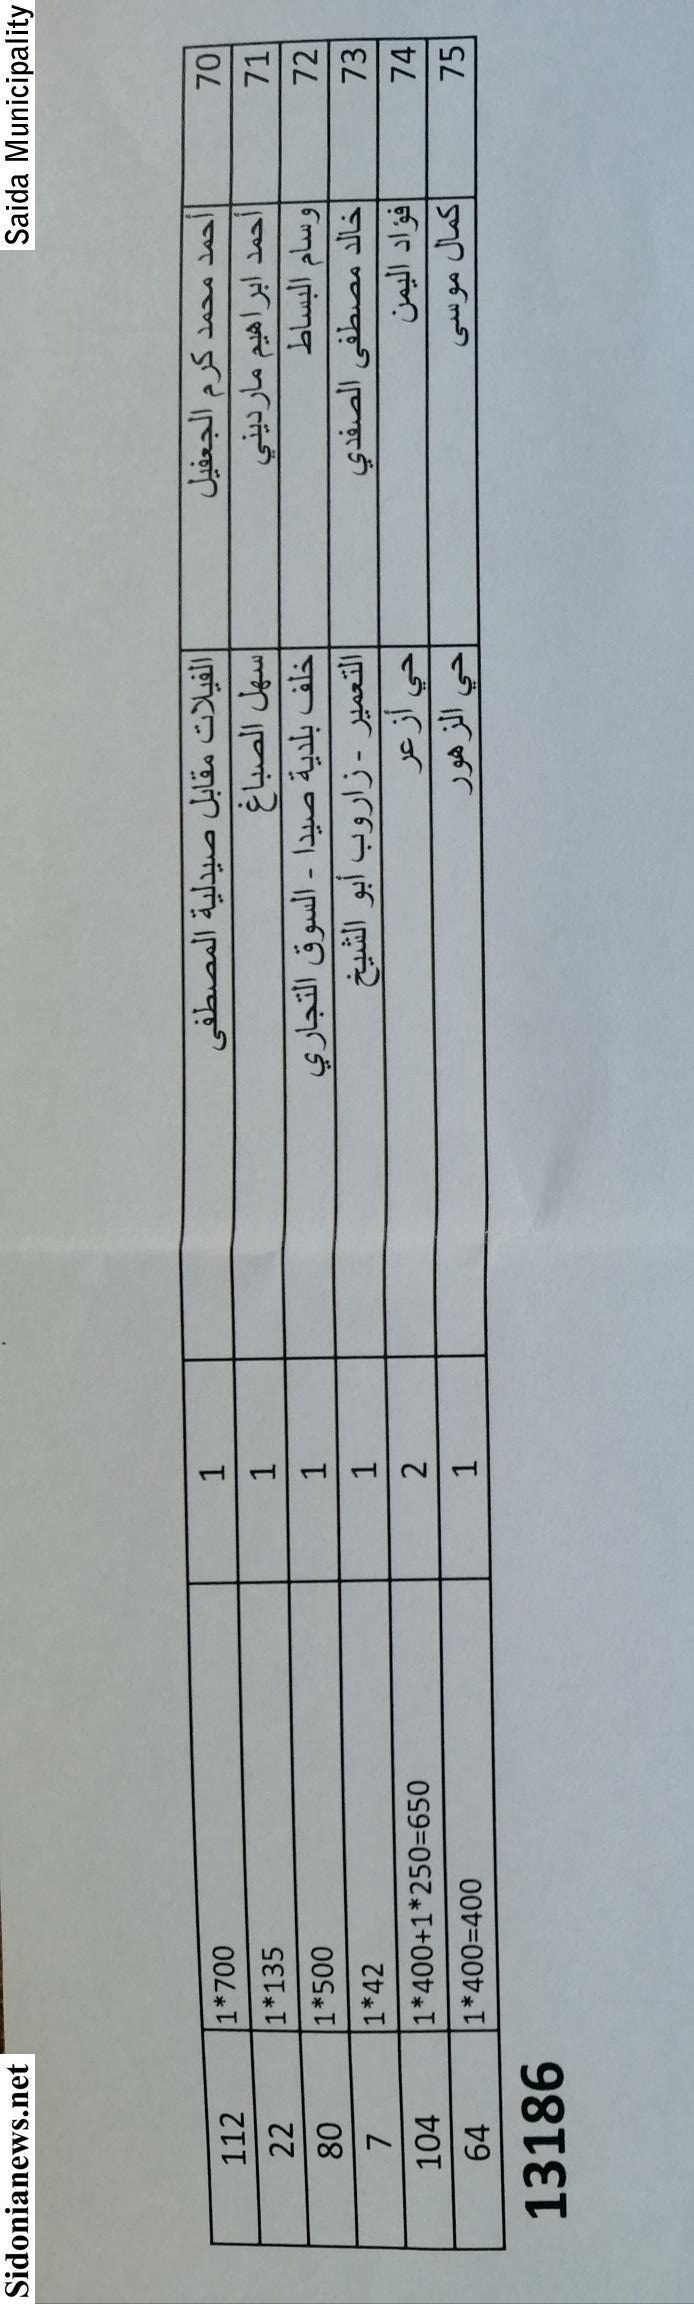 Saida Municipality
Sidonianews.net
70 أحمد محمد كرم الجعفيل الفيلات مقابل صيدلية المصطفى 1 1*700 112
71 أحمد ابراهيم مارديني سهل الصباغ 1 1*135 22
72 وسام البساط خلف بلدية صيدا - السوق التجاري 1 1*500 80
73 خالد مصطفى الصفدي التعمير - زاروب أبو الشيخ 1 1*42 7
74 فؤاد اليمن حي أزعر 2 1*400+1*250=650 104
75 كمال موسى حي الزهور 1 1*400=400 64
13186